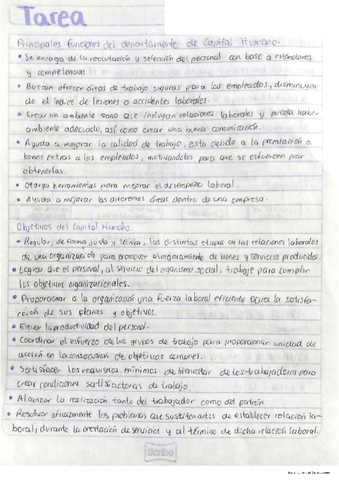 Tarea
Principales funciones del departamento de Capital Humano.
• Se encarga de la reclutación y selección del personal con base a estándares
y competencias
• Buscan ofrecer áreas de trabajo seguras para los empleados, disminuyen-
do el índice de lesiones o accidentes laborales.
• Crear un ambiente sano que incluyan relaciones laborales y pueda haber
ambiente adecuado, así como crear una buena comunicación.
• Ayuda a mejorar la calidad de trabajo, esto debido a la premiación o
bonos extras a los empleados, motivándolos para que se esfuercen por
obtenerlas.
• Otorga herramientas para mejorar el desempeño laboral.
• Ayuda a mejorar las diferentes áreas dentro de una empresa.
Objetivos del Capital Humano.
• Regular, de forma justa y técnica, las distintas etapas de las relaciones laborales
de una organización para promover al mejoramiento de bienes y servicios producidos.
• Lograr que el personal, al servicio del organismo social, trabaje para cumplir
los objetivos organizacionales.
• Proporcionar a la organización una fuerza laboral eficiente para la satisfac-
ción de sus planes y objetivos.
• Elevar la productividad del personal.
• Coordinar el esfuerzo de los grupos de trabajo para proporcionar unidad de
acción en la consecución de objetivos comunes.
• Satisfacer los requisitos mínimos de bienestar de los trabajadores para
crear condiciones satisfactorias de trabajo.
• Alcanzar la realización tanto del trabajador como del patrón.
• Resolver eficazmente los problemas que antes de establecer relación la-
boral, durante la prestación de servicios y al término de dicha relación laboral.
Scribe